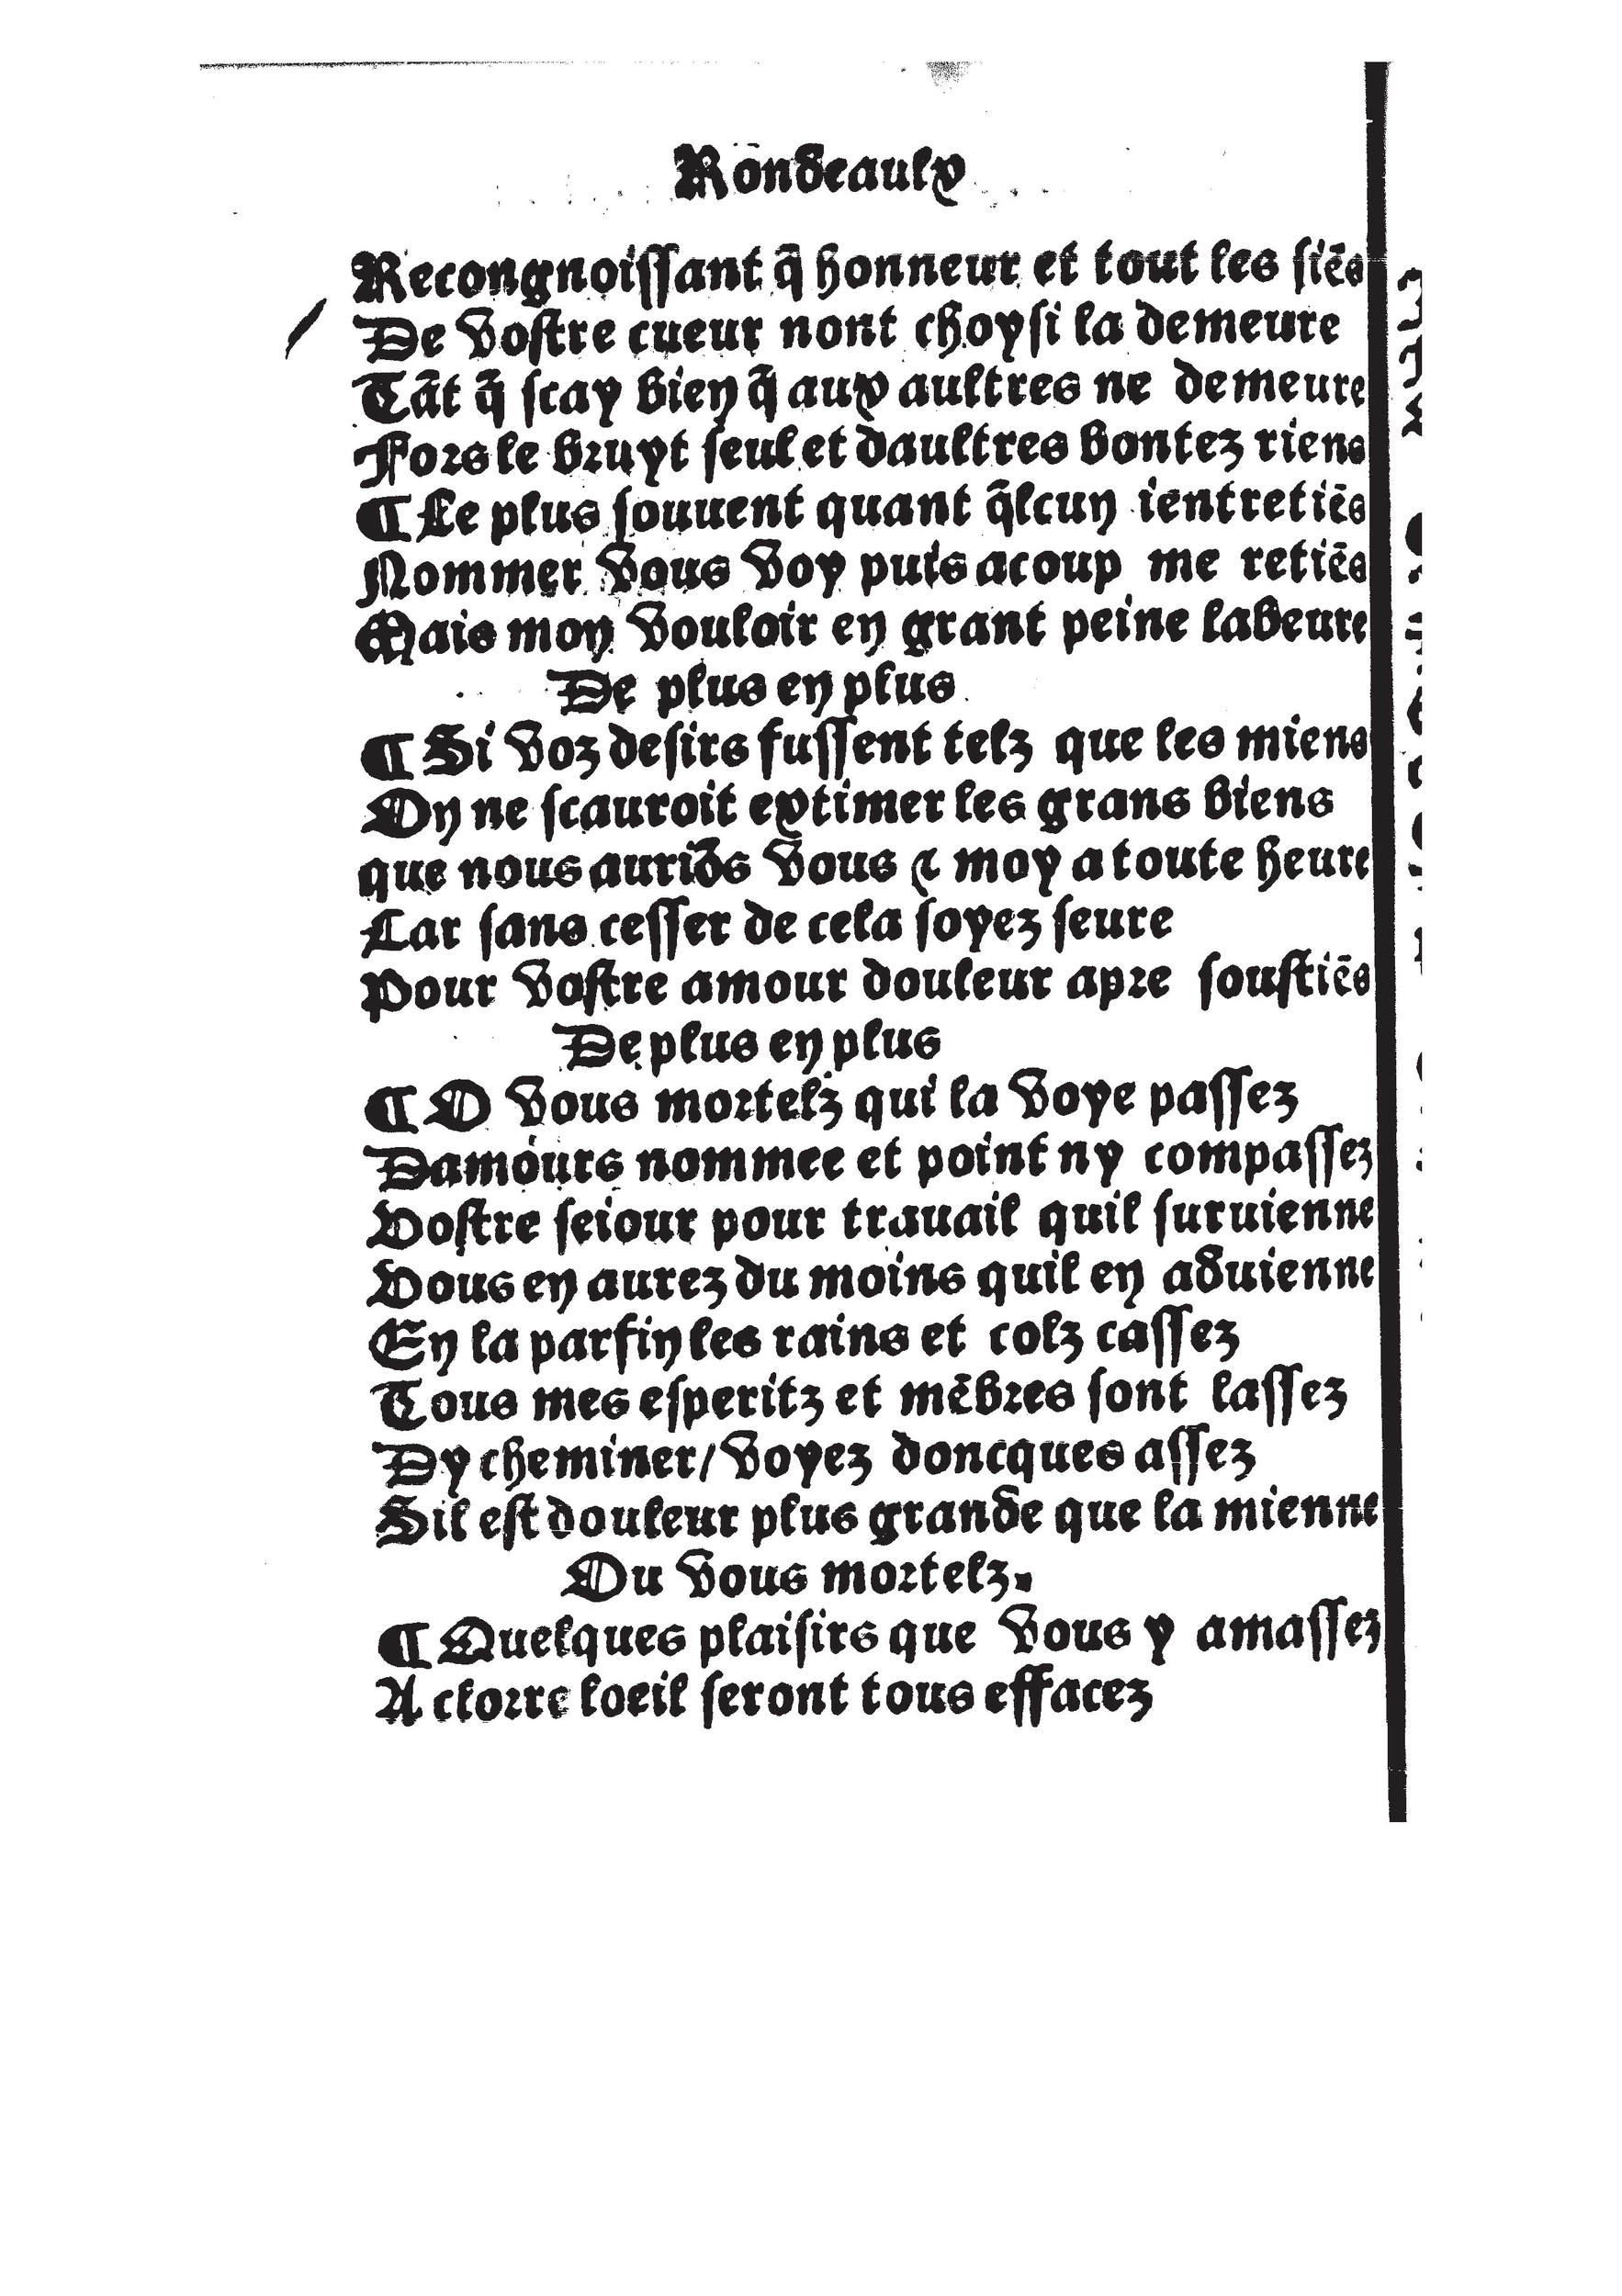 Rondeaulx
Recongnoissant q̃ honneur et tout les siẽs
De vostre cueur nont choysi la demeure
Tãt q̃ scay bien q̃ aux aultres ne demeure
Fors le bruyt seul et daultres bontez riens
¶ Le plus souuent quant q̃lcun ientretiẽs
Nommer vous voy puis acoup me retiẽs
Mais mon vouloir en grant peine labeure
De plus en plus
¶ Si voz desirs fussent telz que les miens
On ne scauroit extimer les grans biens
que nous auriõs vous ⁊ moy a toute heure
Car sans cesser de cela soyez seure
Pour vostre amour douleur apre soustiẽs
De plus en plus
¶ O vous mortelz qui la voye passez
Damours nommee et point ny compassez
Vostre seiour pour trauail quil suruienne
Vous en aurez du moins quil en aduienne
En la parfin les rains et colz cassez
Tous mes esperitz et mẽbres sont lassez
Dy cheminer/ voyez doncques assez
Sil est douleur plus grande que la mienne
Ou vous mortelz.
¶ Quelques plaisirs que vous y amassez
A clorre loeil seront tous effacez